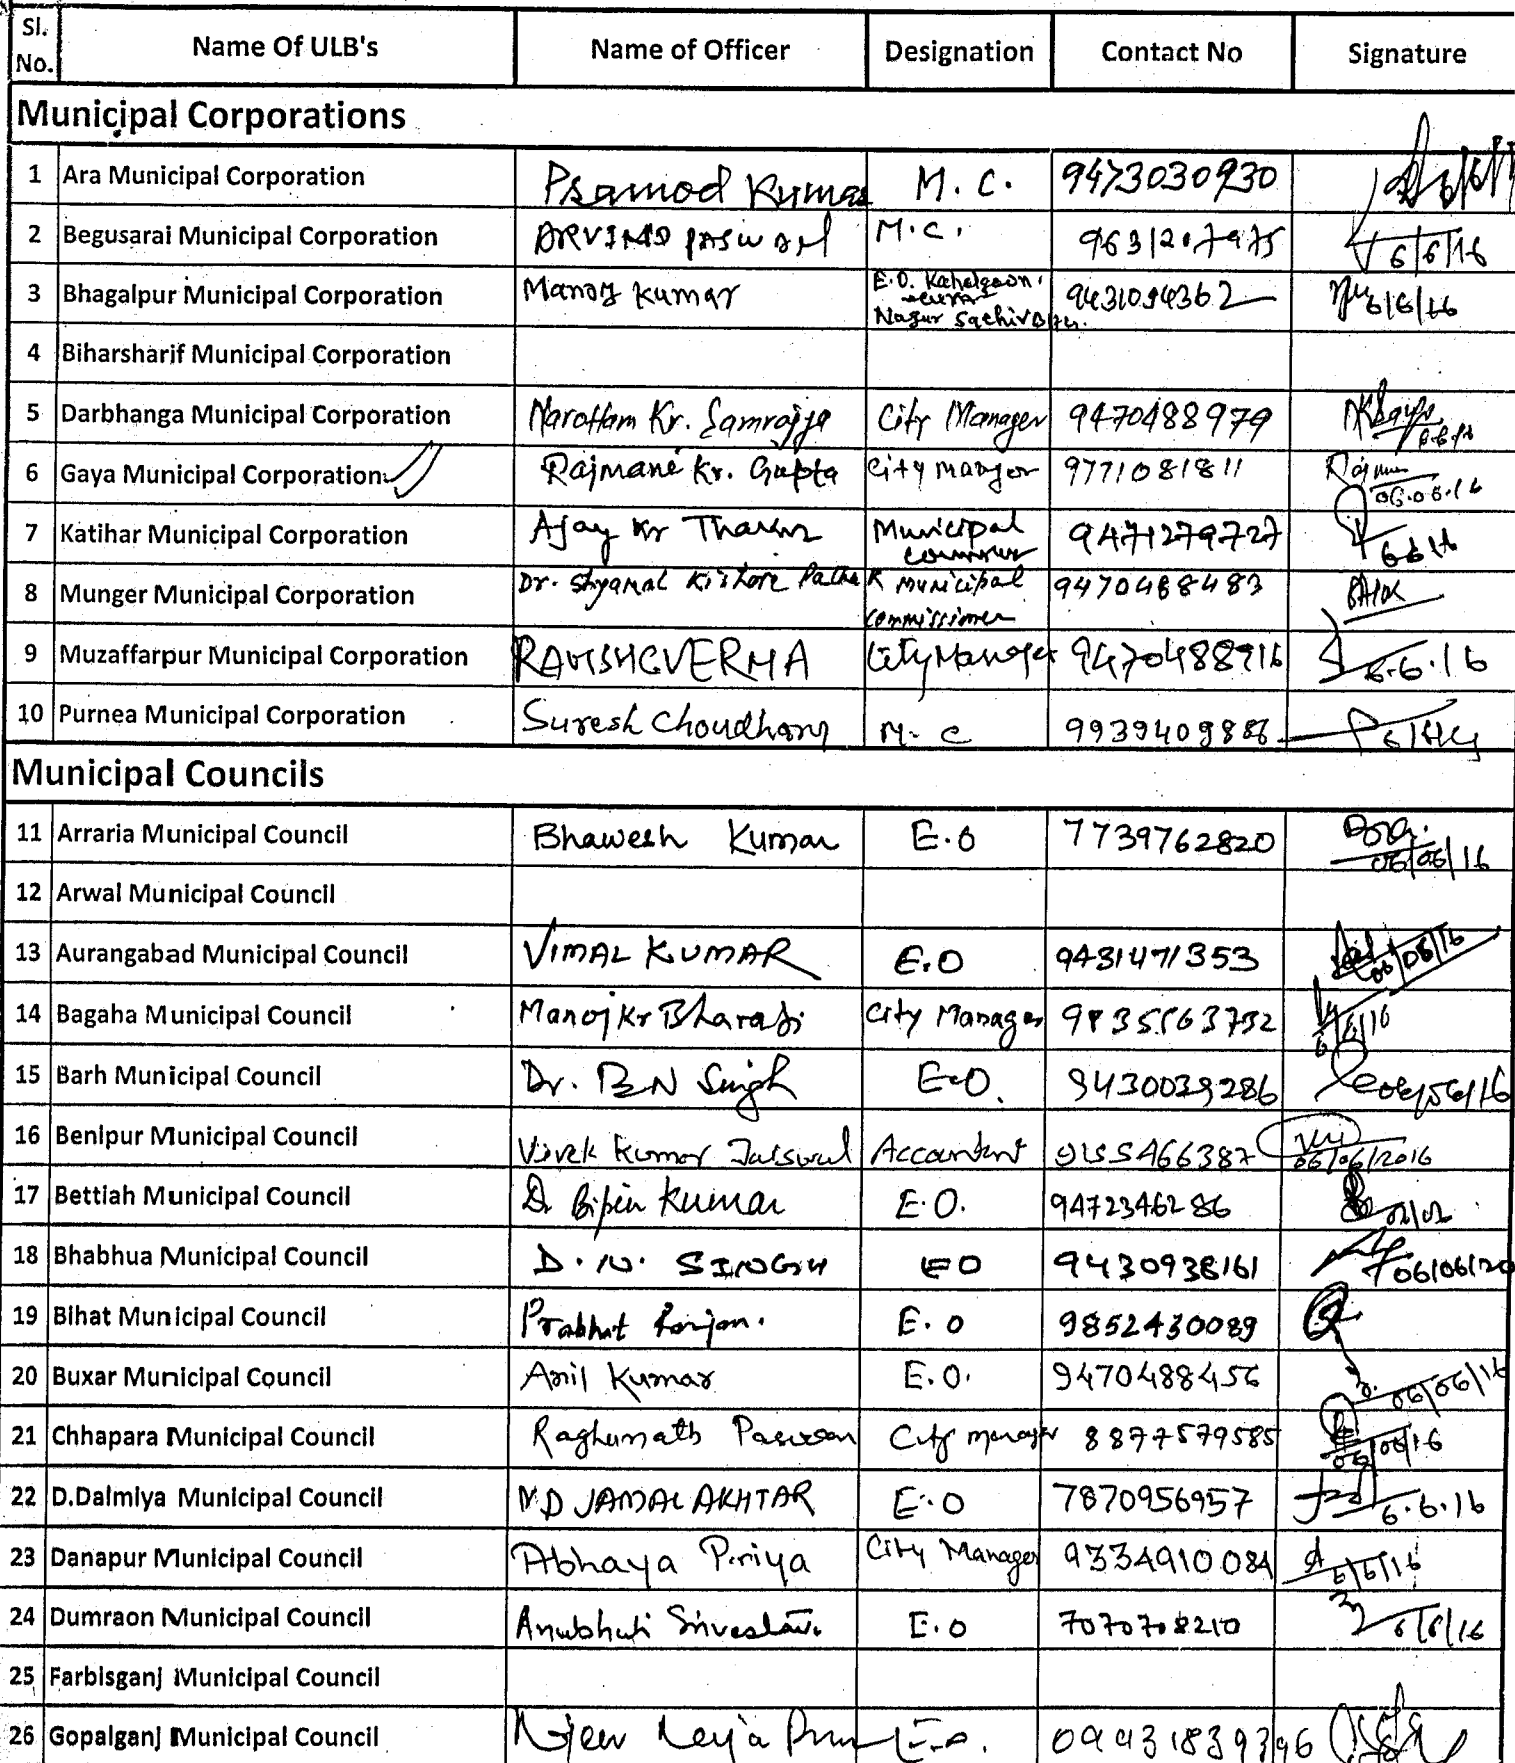 Sl. No. Name Of ULB's Name of Officer Designation Contact No Signature
Municipal Corporations
1 Ara Municipal Corporation Pramod Kumar M.C. 9473030930
2 Begusarai Municipal Corporation ARVIND PASWAN M.C. 9631207975 6/6/16
3 Bhagalpur Municipal Corporation Manoj Kumar E.O. Kahalgaon 9431094362 6/6/16
Nagar Sachiv
4 Biharsharif Municipal Corporation
5 Darbhanga Municipal Corporation Narottam Kr. Samrajya City Manager 9470488979 6.6.16
6 Gaya Municipal Corporation Rajmane Kr. Gupta City Manager 9771081811 06.06.16
7 Katihar Municipal Corporation Ajay Kr Thakur Municipal 9471279727 6 6 16
8 Munger Municipal Corporation Dr. Shyamal Kishore Pathak Municipal 9470488483
Commissioner
9 Muzaffarpur Municipal Corporation VERMA City Manager 9470488916 6.6.16
10 Purnea Municipal Corporation Suresh Choudhary M.C 9939409886
Municipal Councils
11 Arraria Municipal Council Bhawesh Kumar E.O 7739762820 06/06/16
12 Arwal Municipal Council
13 Aurangabad Municipal Council VIMAL KUMAR E.O 9431471353 06/06/16
14 Bagaha Municipal Council Manoj Kr Bharati City Manager 6/6/16
15 Barh Municipal Council Dr. BN Singh E.O. 9430039286 06/06/16
16 Benipur Municipal Council Vivek Kumar Jaiswal Accountant 9155466387 06/06/2016
17 Bettiah Municipal Council Dr Bipin Kumar E.O. 9472346286
18 Bhabhua Municipal Council D.N. SINGH EO 9430938161 06/06/20
19 Bihat Municipal Council Prabhat Ranjan. E.O 9852430089
20 Buxar Municipal Council Anil Kumar E.O. 9470488456 06/06/16
21 Chhapara Municipal Council Raghunath Paswan City manager 8877579585 06/06/16
22 D.Dalmiya Municipal Council MD JAMAL AKHTAR E.O 7870956957 6.6.16
23 Danapur Municipal Council Abhaya Priya City Manager 9334910084 6/6/16
24 Dumraon Municipal Council Anubhuti Srivastava E.O 7070708210 6/6/16
25 Farbisganj Municipal Council
26 Gopalganj Municipal Council E.O. 09931839396